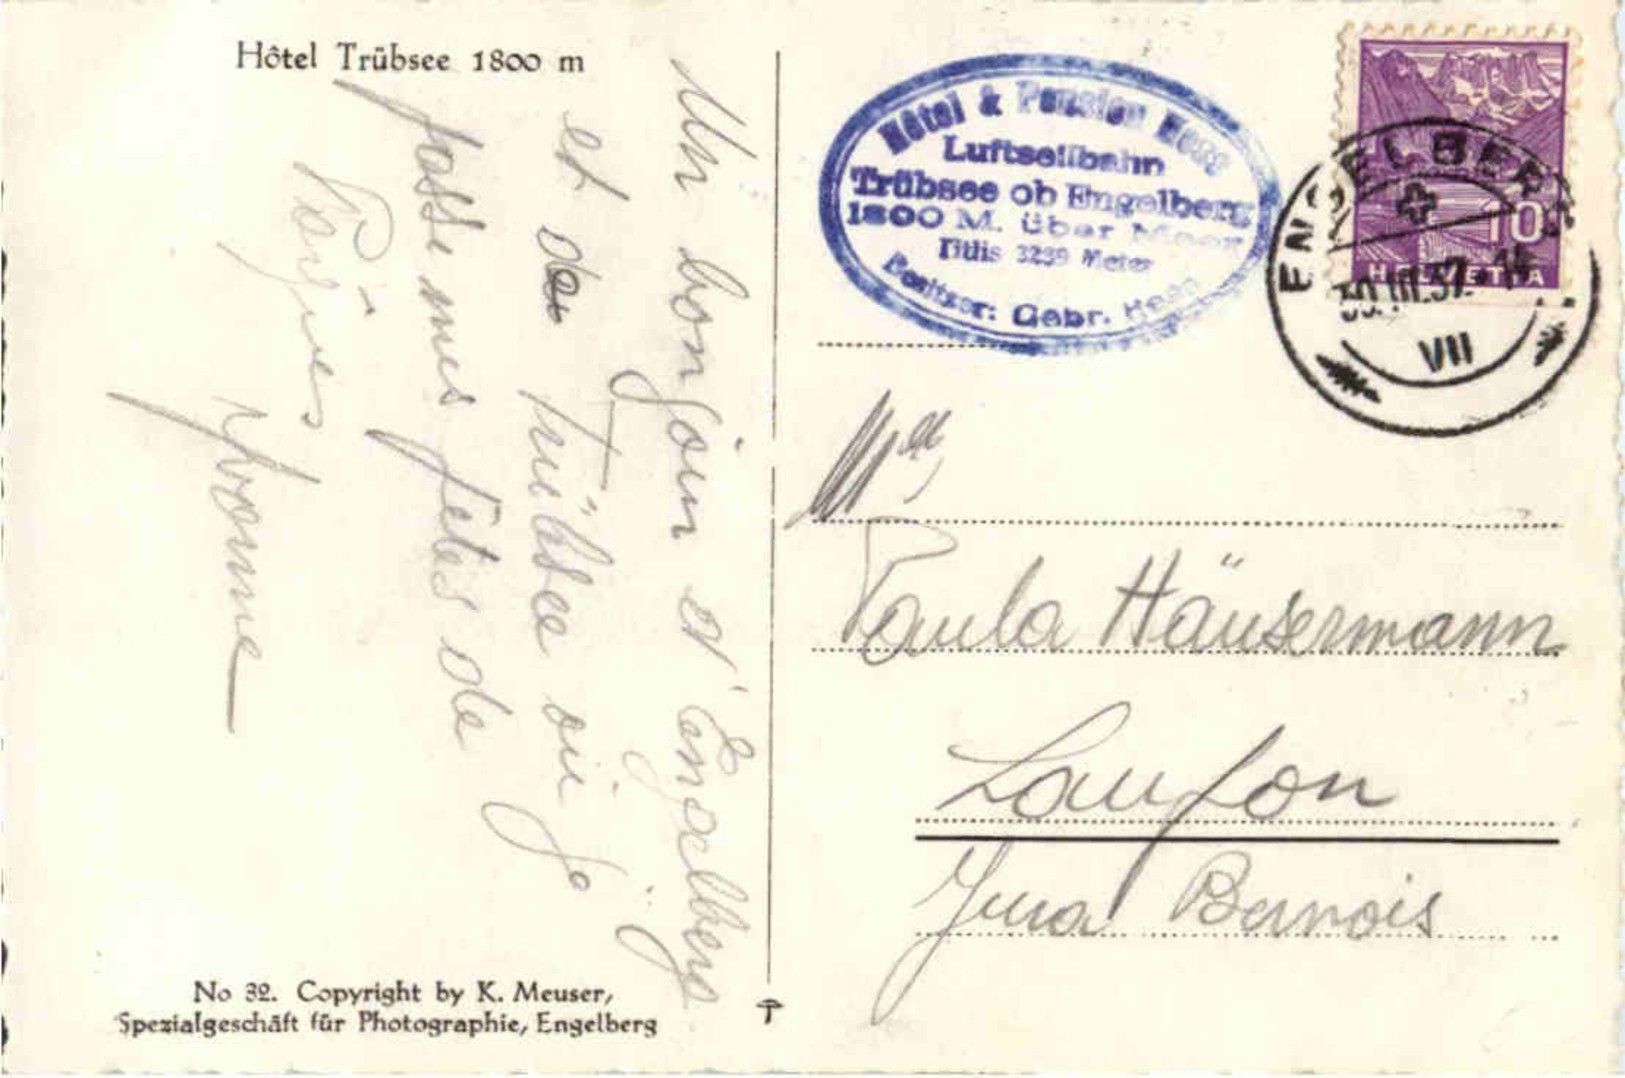 Hôtel Trübsee 1800 m
Un bonjour d'Engelberg
et de Trübsee où je
passe mes fêtes de
Pâques
Yvonne
No 32. Copyright by K. Meuser,
Spezialgeschäft für Photographie, Engelberg
Hôtel & Pension Hess
Luftseilbahn
Trübsee ob Engelberg
1800 M. über Meer
Titlis 3239 Meter
Besitzer: Gebr. Hess
10
HELVETIA
ENGELBERG
30.III.37.
VII
Paula Häusermann
Laufon
Jura Bernois